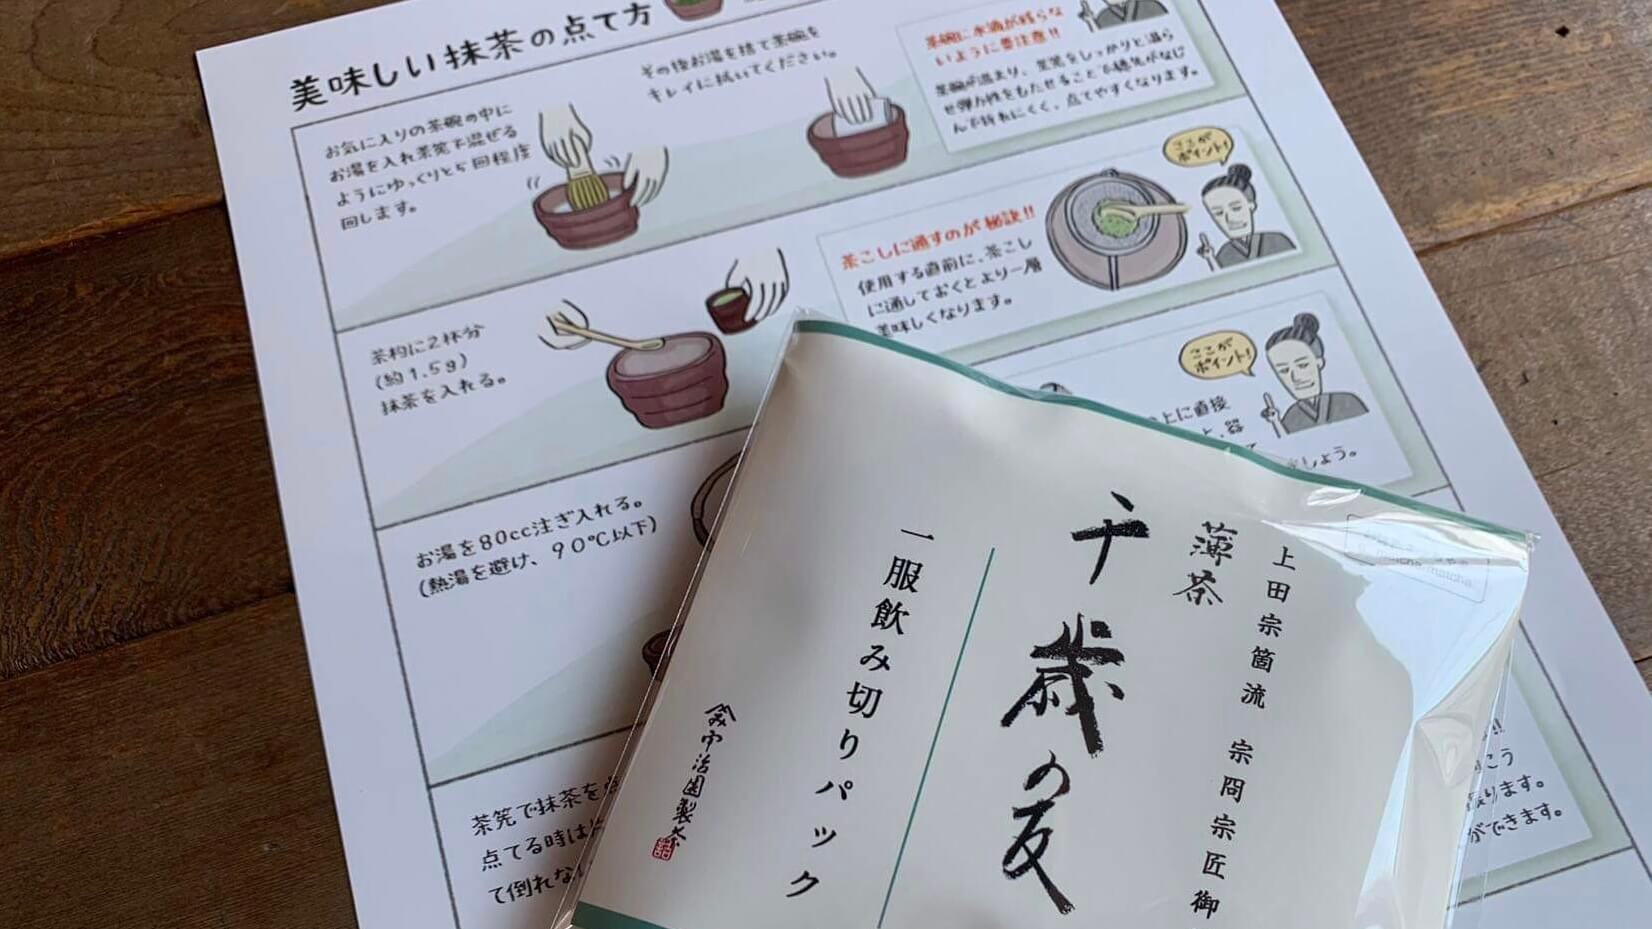 美味しい抹茶の点て方
お気に入りの茶碗の中に
お湯を入れ茶筅で混ぜる
ようにゆっくりと5回程度
回します。
その後お湯を捨て茶碗を
キレイに拭いてください。
茶碗に水滴が残らな
いように要注意!!
茶碗が温まり、茶筅をしっかりと湿ら
せ弾力性をもたせることで穂先がなじ
んで折れにくく、点てやすくなります。
茶杓に2杯分
(約1.5g)
抹茶を入れる。
茶こしに通すのが秘訣!!
使用する直前に、茶こし
に通しておくとより一層
美味しくなります。
ここが
ポイント!
お湯を80cc注ぎ入れる。
(熱湯を避け、90℃以下)
上に直接
器
しょう。
ここが
ポイント!
茶筅で抹茶を
点てる時は
て倒れな
こう
ります。
ができます。
上田宗箇流 宗冏宗匠御
薄茶
千歳の友
一服飲み切りパック
製茶